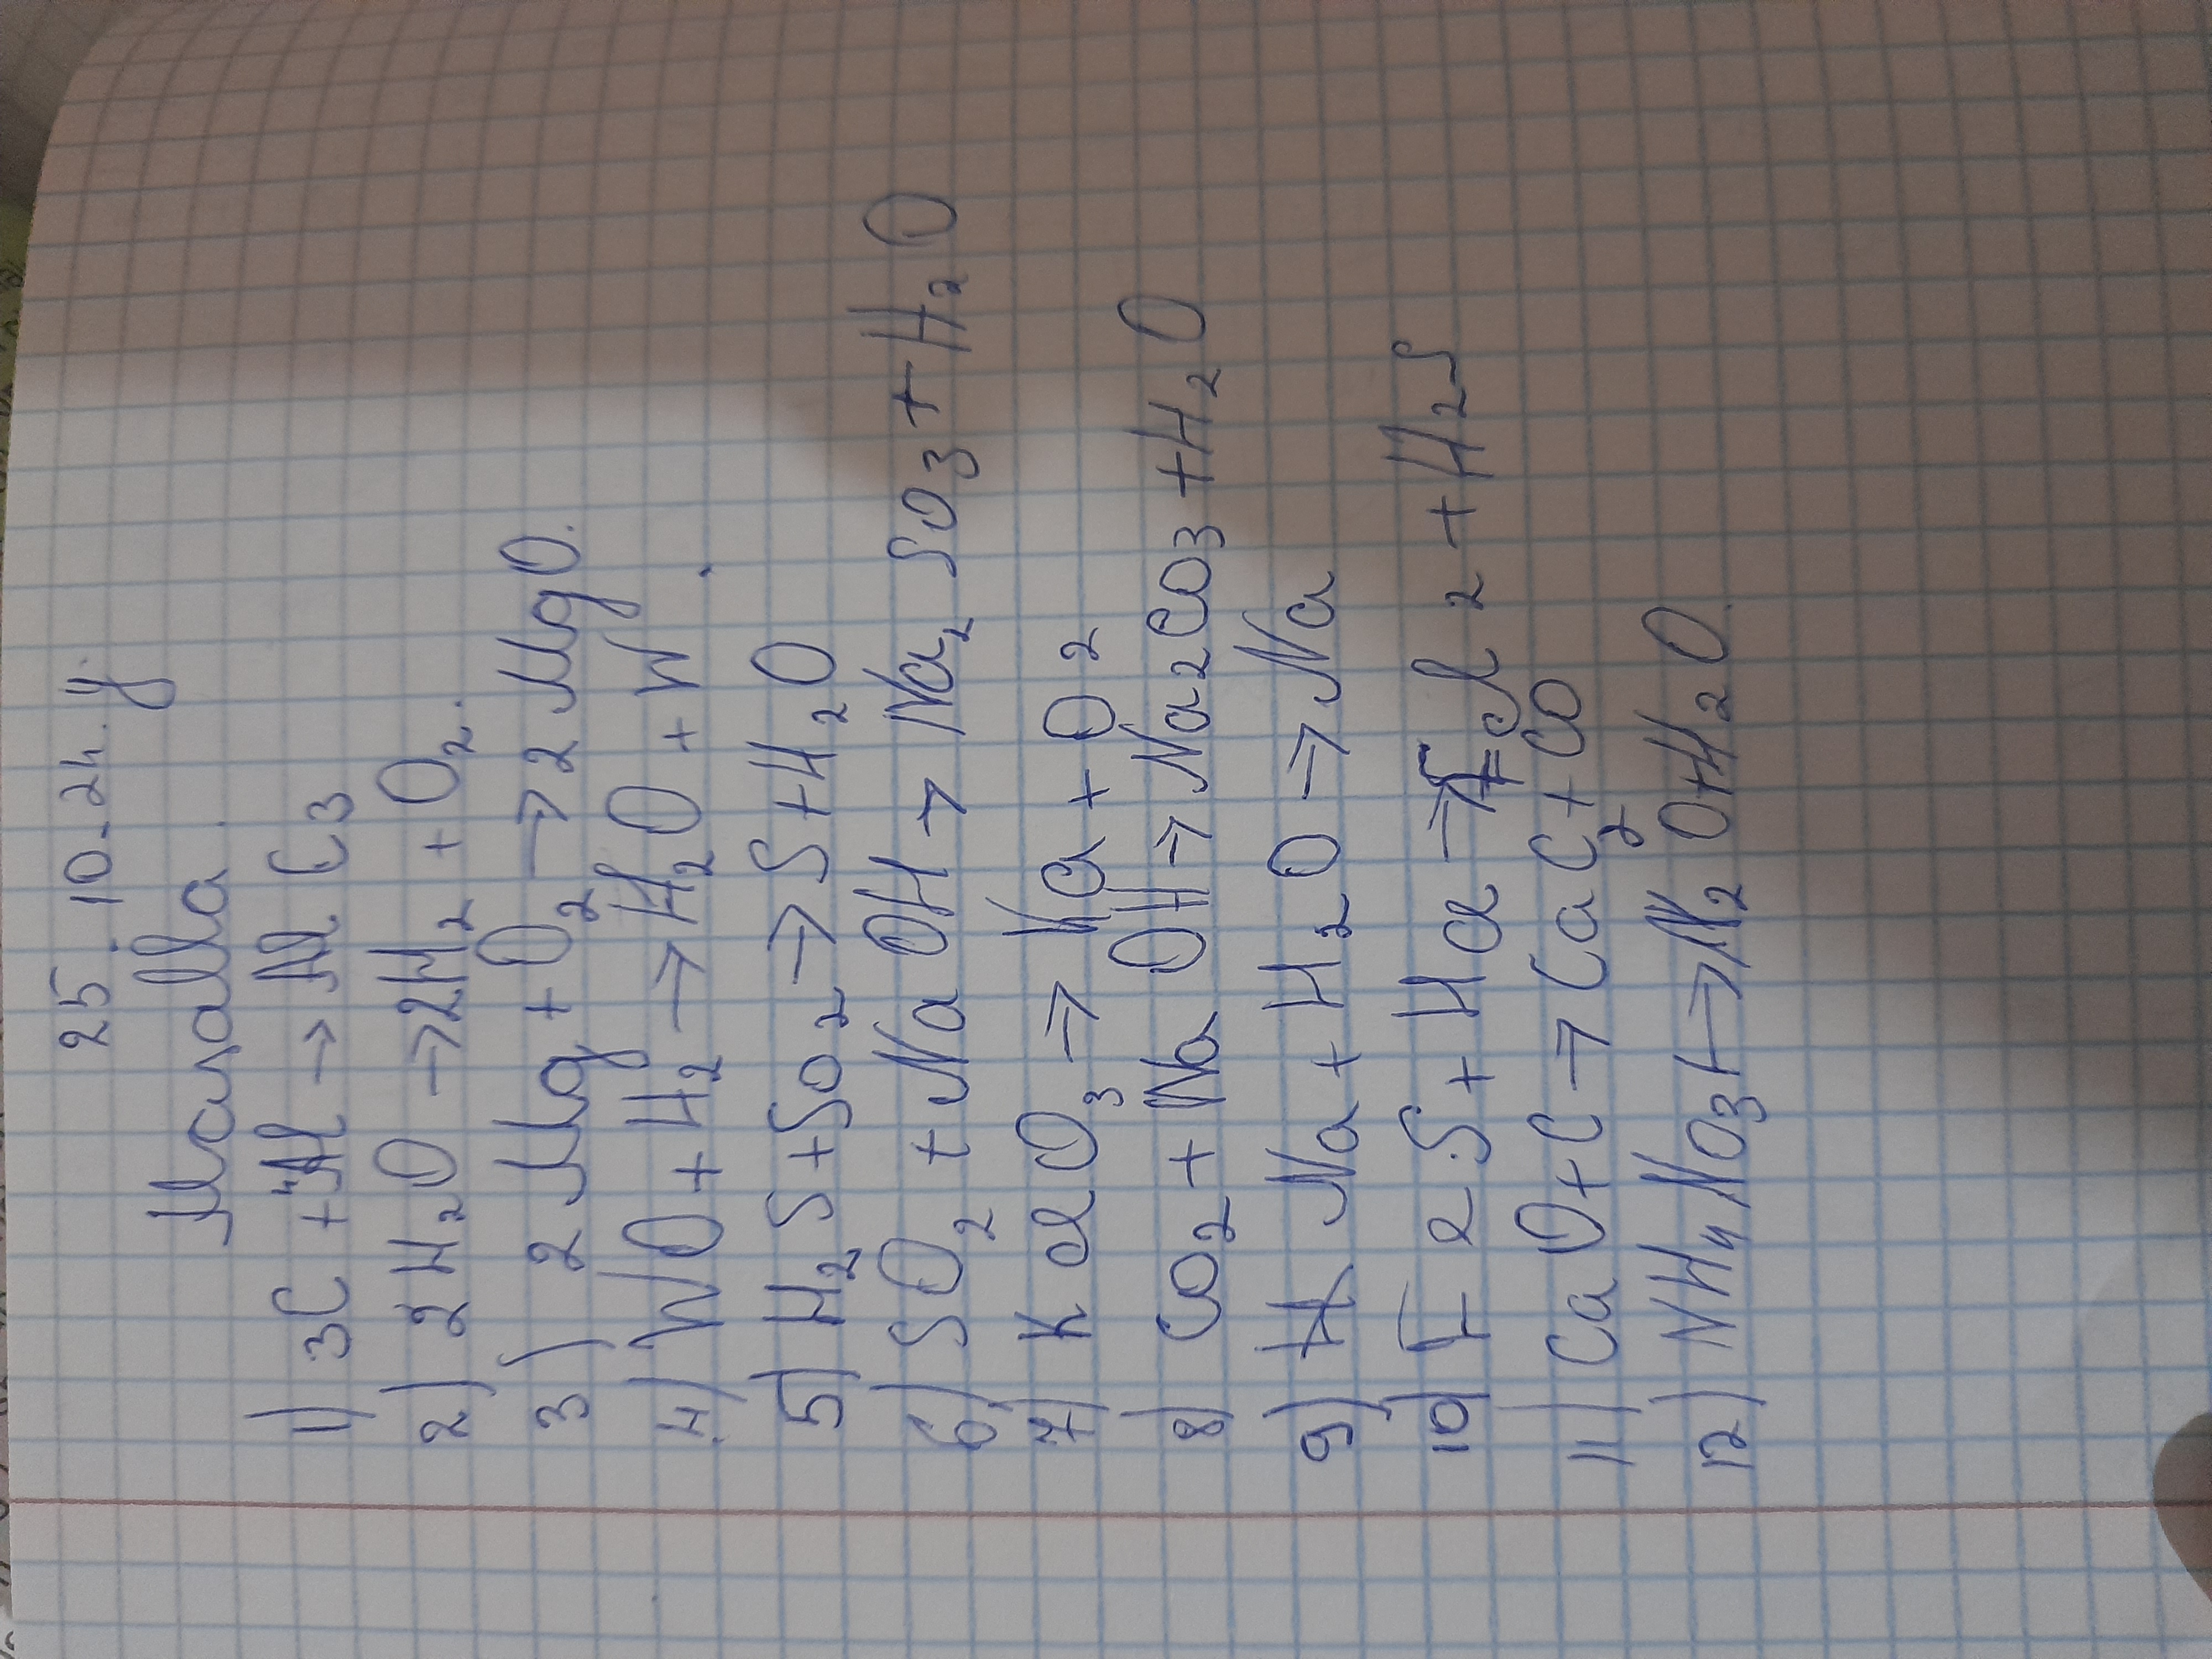 25.10.24.y.
Masalla.
1) 3C + 4Al → Al C3
2) 2H2O → 2H2 + O2.
3) 2Mg + O2 → 2MgO.
4) WO + H2 → H2O + W.
5) H2S + SO2 → S + H2O
6) SO2 + NaOH → Na2SO3 + H2O
7) KClO3 → KCl + O2
8) CO2 + NaOH → Na2CO3 + H2O
9) Na + H2O → Na
10) FeS + HCl → FCl2 + H2S
11) CaO + C → CaC2 + CO
12) NH4NO3 → N2O + H2O.